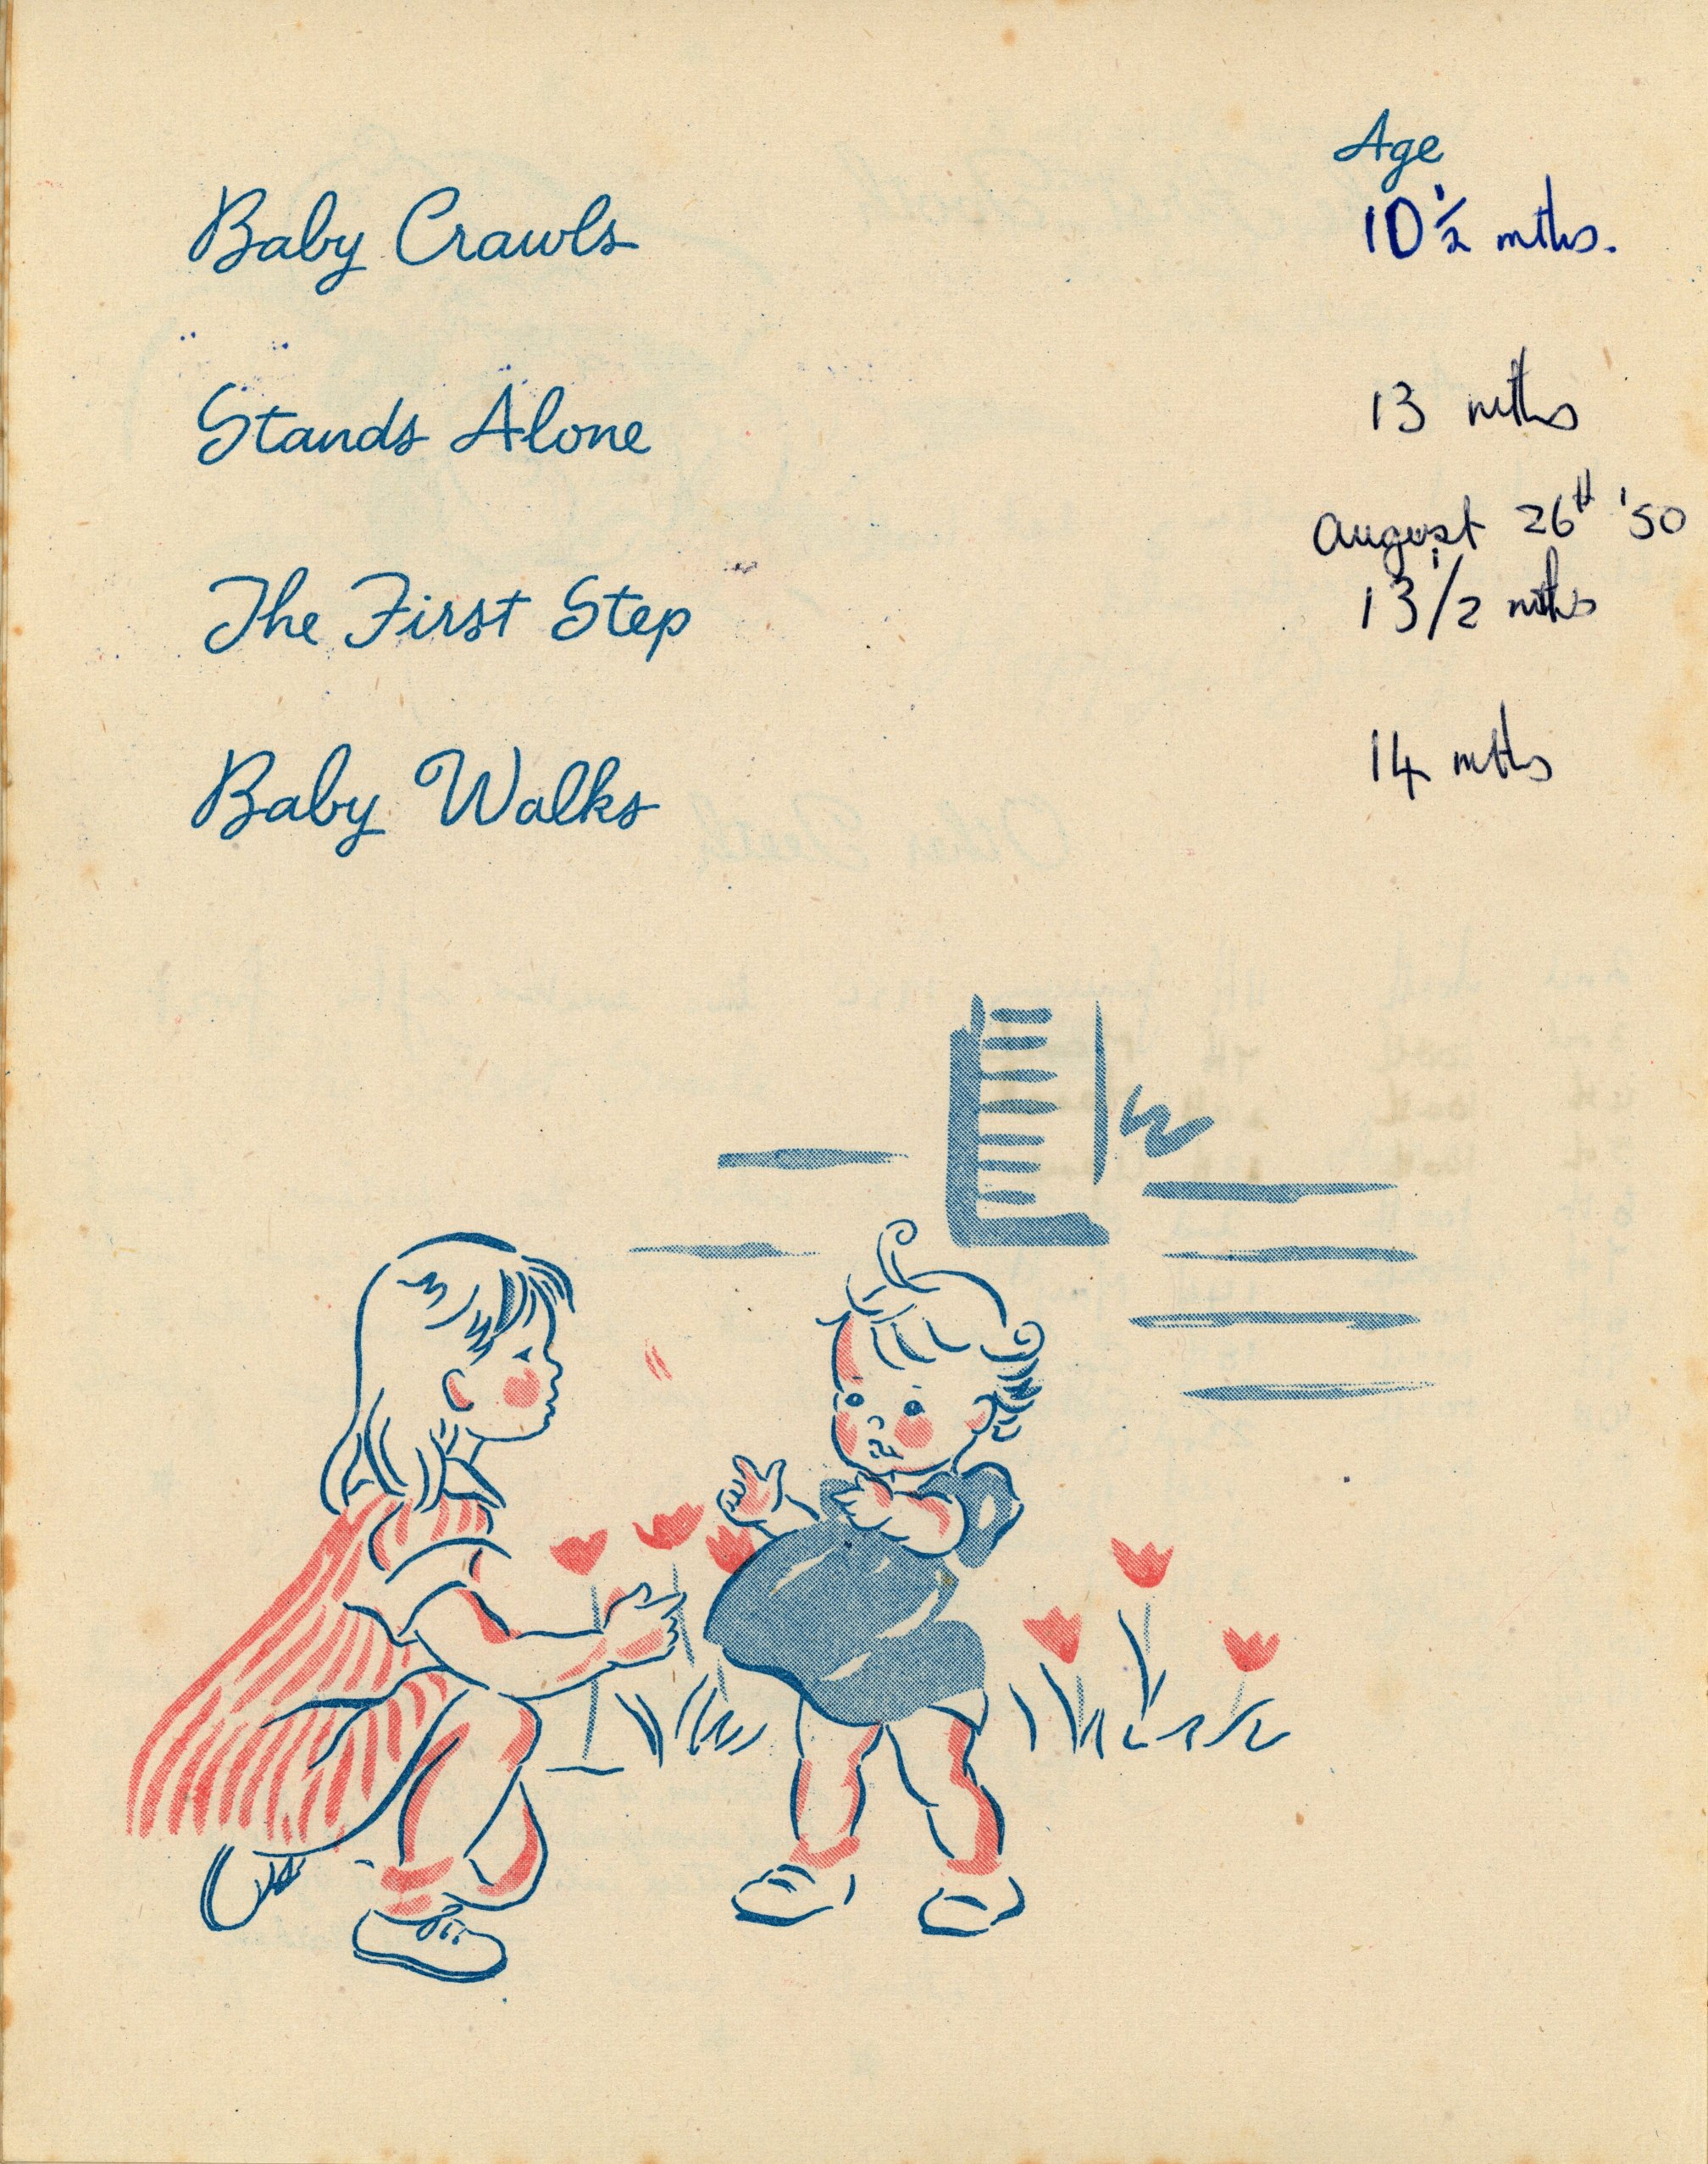 Age
Baby Crawls 10 1/2 mths.
Stands Alone 13 mths
August 26th '50
The First Step 13 1/2 mths
Baby Walks 14 mths